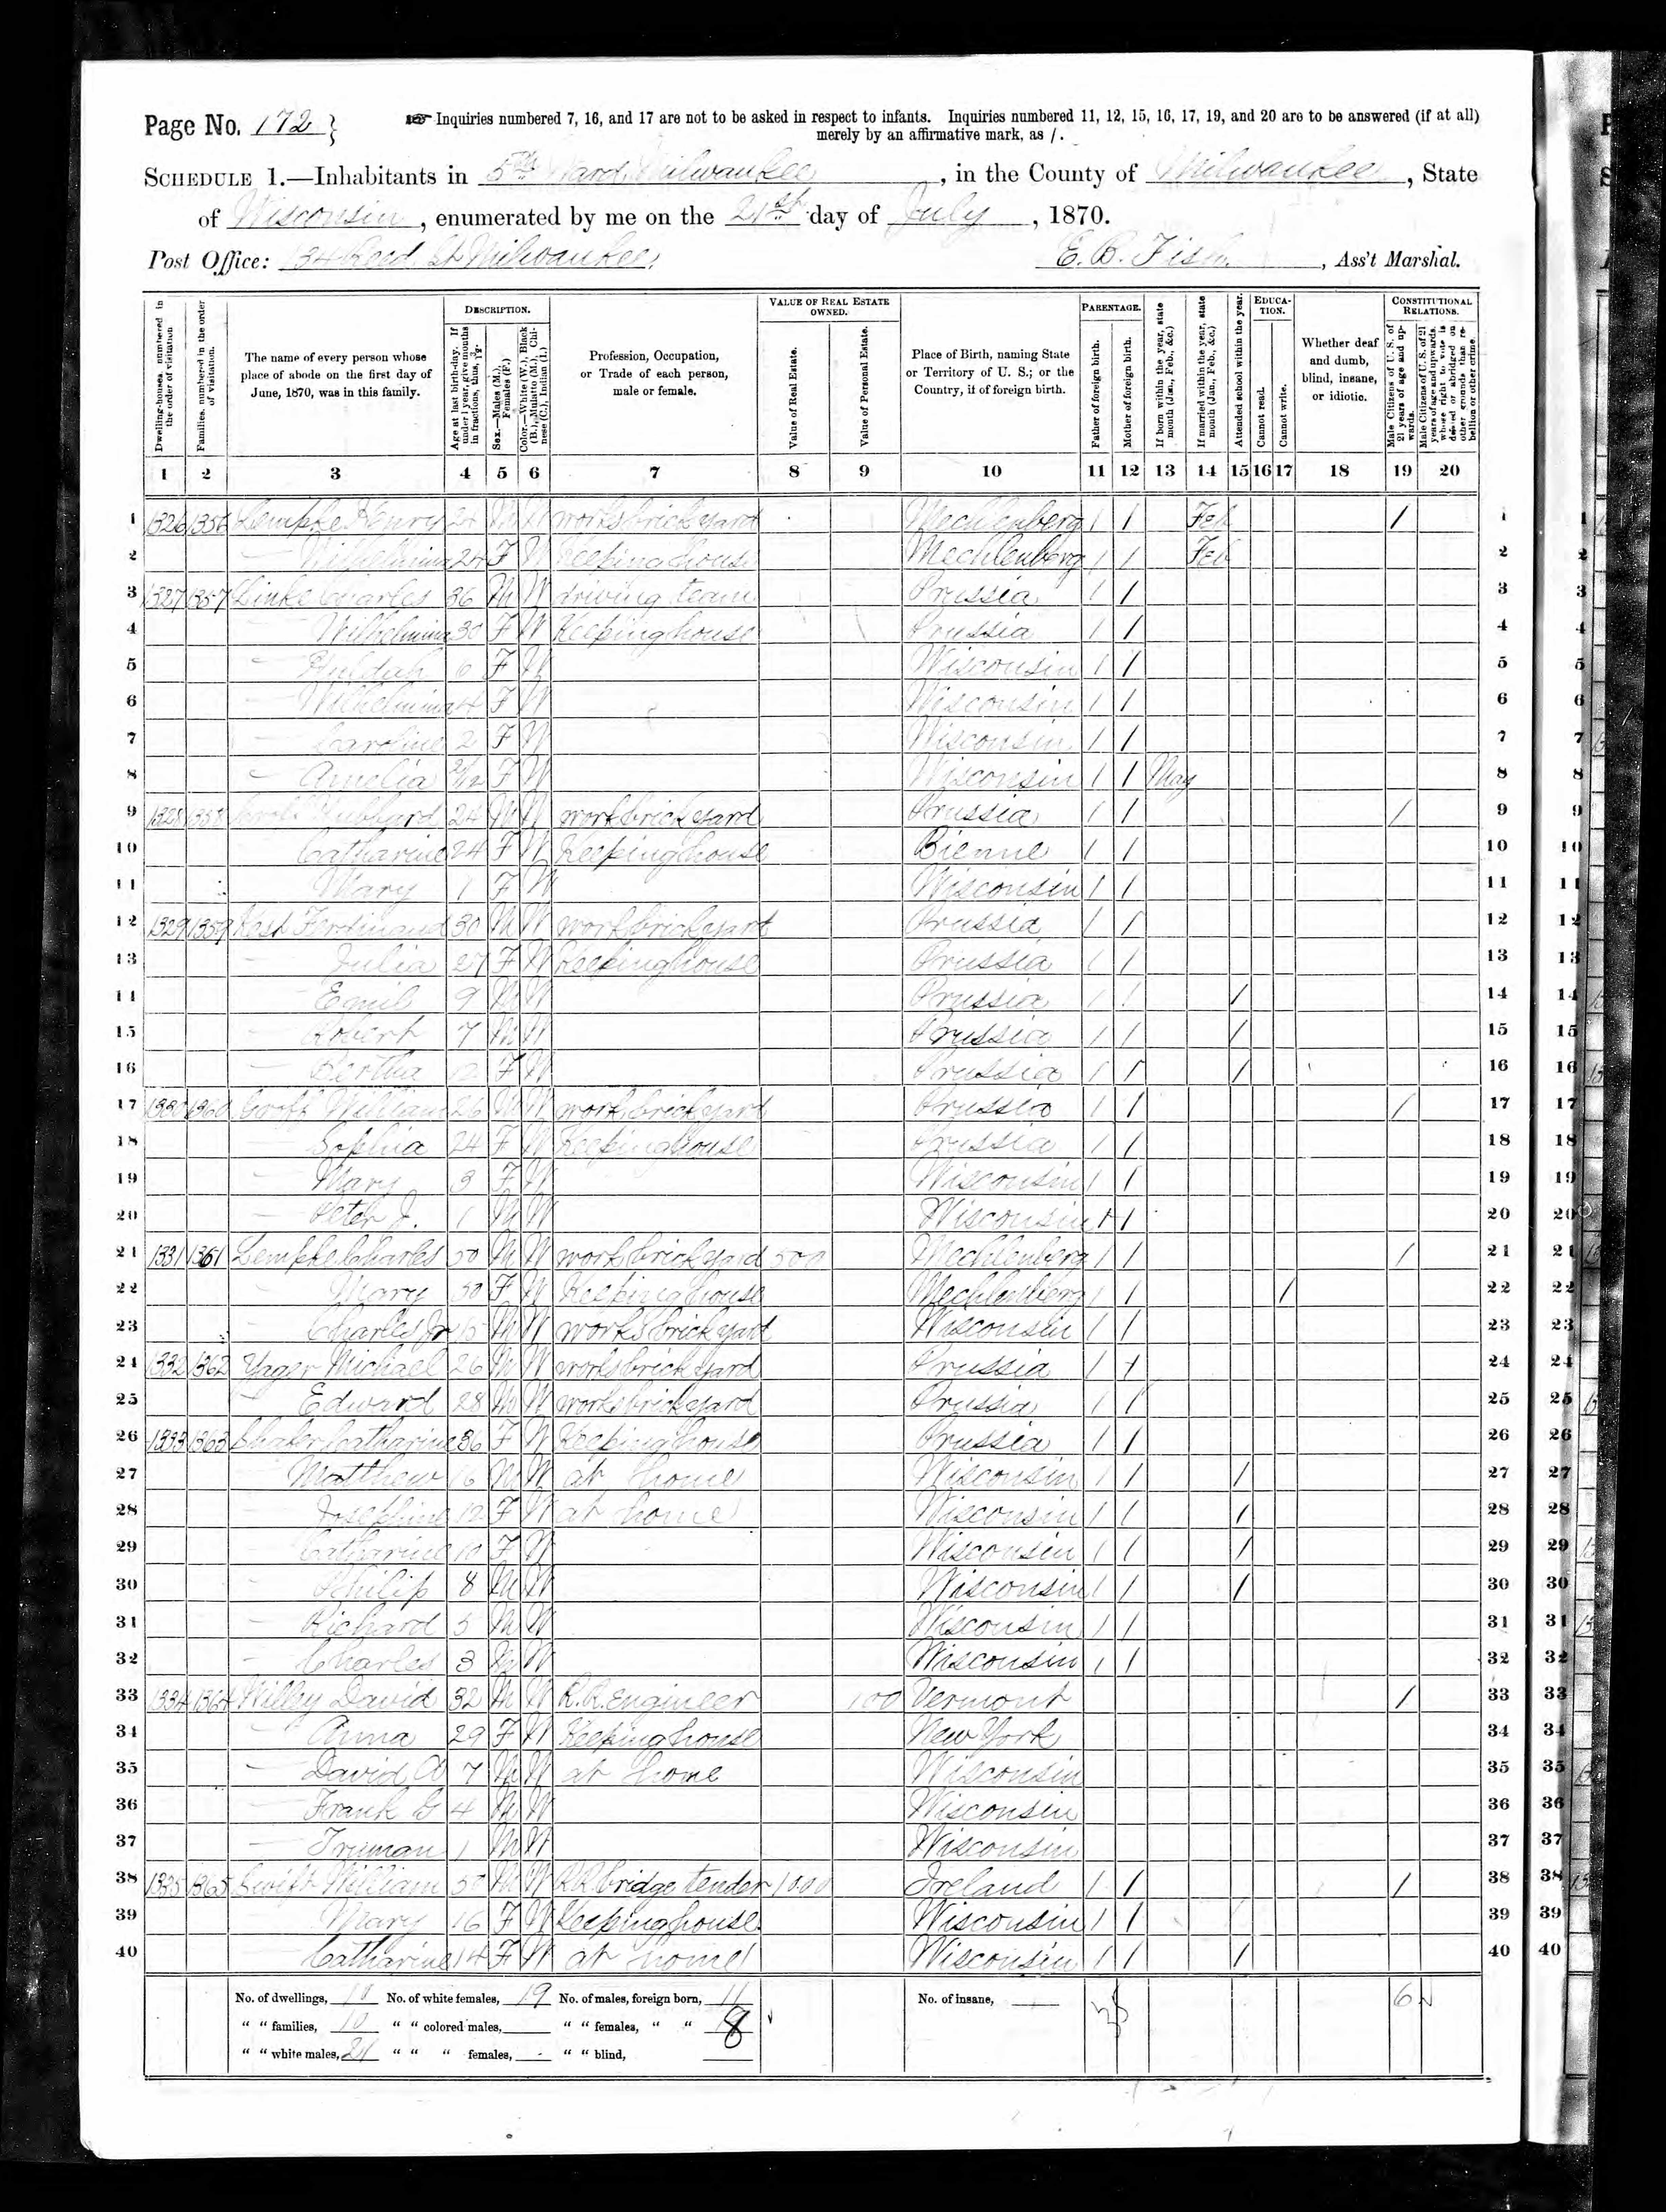 Page No. 172
Inquiries numbered 7, 16, and 17 are not to be asked in respect to infants. Inquiries numbered 11, 12, 15, 16, 17, 19, and 20 are to be answered (if at all)
merely by an affirmative mark, as /.
SCHEDULE 1.—Inhabitants in 5th Ward Milwaukee, in the County of Milwaukee, State
of Wisconsin, enumerated by me on the 21st day of July, 1870.
Post Office: 134 Reed St Milwaukee. E. B. Fish, Ass't Marshal.
Dwelling-houses, numbered in the order of visitation
Families, numbered in the order of visitation.
The name of every person whose place of abode on the first day of June, 1870, was in this family.
DESCRIPTION.
Age at last birth-day. If under 1 year, give months in fractions, thus, 3/12.
Sex.—Males (M.), Females (F.)
Color.—White (W.), Black (B.), Mulatto (M.), Chinese (C.), Indian (I.)
Profession, Occupation, or Trade of each person, male or female.
VALUE OF REAL ESTATE OWNED.
Value of Real Estate.
Value of Personal Estate.
Place of Birth, naming State or Territory of U. S.; or the Country, if of foreign birth.
PARENTAGE.
Father of foreign birth.
Mother of foreign birth.
If born within the year, state month (Jan., Feb., &c.)
If married within the year, state month (Jan., Feb., &c.)
Attended school within the year.
EDUCATION.
Cannot read.
Cannot write.
Whether deaf and dumb, blind, insane, or idiotic.
CONSTITUTIONAL RELATIONS.
Male Citizens of U. S. of 21 years of age and upwards.
Male Citizens of U. S. of 21 years of age and upwards, whose right to vote is denied or abridged on other grounds than rebellion or other crime.
1 2 3 4 5 6 7 8 9 10 11 12 13 14 15 16 17 18 19 20
1 1326 1356 Lempke Henry 24 M W works brick yard Mechlenberg / / Feb / 1
2 — Wilhelmina 24 F W Keeping house Mechlenberg / / Feb 2
3 1327 1357 Linke Charles 36 M W driving team Prussia / / 3
4 — Wilhelmina 30 F W Keeping house Prussia / / 4
5 — Huldah 6 F W Wisconsin / / 5
6 — Wilhelmina 4 F W Wisconsin / / 6
7 — Caroline 2 F W Wisconsin / / 7
8 — Amelia 2/12 F W Wisconsin / / May 8
9 1328 1358 Hubbard 24 M W work brick yard Prussia / / / 9
10 Catharine 24 F W Keeping house Bienne / / 10
11 Mary 1 F W Wisconsin / / 11
12 1329 1359 Ferdinand 30 M W work brick yard Prussia / / 12
13 — Julia 27 F W Keeping house Prussia / / 13
14 — Emil 9 M W Prussia / / / 14
15 — Robert 7 M W Prussia / / / 15
16 — Bertha 12 F W Prussia / / / 16
17 1330 1360 William 26 M W work brick yard Prussia / / / 17
18 — Sophia 24 F W Keeping house Prussia / / 18
19 — Mary 3 F W Wisconsin / / 19
20 — Peter J. 1 M W Wisconsin / / 20
21 1331 1361 Lempke Charles 50 M W work brick yard 500 Mechlenberg / / / 21
22 — Mary 50 F W Keeping house Mechlenberg / / / 22
23 Charles Jr 15 M W works brick yard Wisconsin / / 23
24 1332 1362 Yager Michael 26 M W works brick yard Prussia / / 24
25 — Edward 28 M W works brick yard Prussia / / 25
26 1333 1363 Shafer Catharine 36 F W Keeping house Prussia / / 26
27 — Matthew 16 M W at home Wisconsin / / / 27
28 — Josephine 12 F W at home Wisconsin / / / 28
29 — Catharine 10 F W Wisconsin / / / 29
30 — Philip 8 M W Wisconsin / / / 30
31 — Richard 5 M W Wisconsin / / 31
32 — Charles 3 M W Wisconsin / / 32
33 1334 1364 Willey David 32 M W R.R. Engineer 100 Vermont / 33
34 — Anna 29 F W Keeping house New York 34
35 — David A 7 M W at home Wisconsin 35
36 — Frank G 4 M W Wisconsin 36
37 — Truman 1 M W Wisconsin 37
38 1335 1365 Swift William 50 M W RR bridge tender 1000 Ireland / / / 38
39 Mary 16 F W Keeping house Wisconsin / / 39
40 Catharine 14 F W at home Wisconsin / / / 40
No. of dwellings, 10 No. of white females, 19 No. of males, foreign born, 11 No. of insane, 6
" " families, 10 " " colored males, " " females, " " 8
" " white males, 21 " " " females, - " " blind,